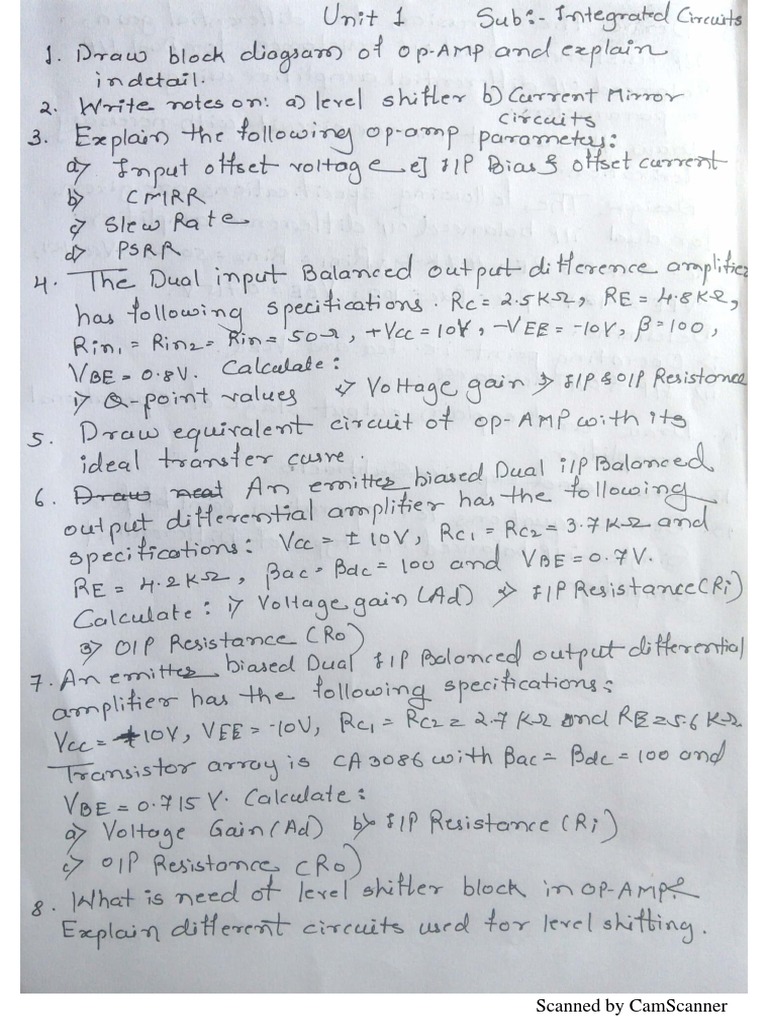 Unit 1 Sub:- Integrated Circuits
1. Draw block diagram of op-AMP and explain
in detail.
2. Write notes on: a) level shifter b) Current Mirror
circuits
3. Explain the following op-amp parameters:
a) Input offset voltage e] I/P Bias & offset current
b) CMRR
c) Slew Rate
d) PSRR
4. The Dual input Balanced output difference amplifier
has following specifications. Rc = 2.5KΩ, RE = 4.8KΩ,
Rin1 = Rin2 = Rin = 50Ω, +Vcc = 10V, -VEE = -10V, β=100,
VBE = 0.8V. Calculate:
1) Q-point values 2) Voltage gain 3) I/P & O/P Resistance
5. Draw equivalent circuit of op-AMP with its
ideal transfer curve.
6. Draw neat An emitter biased Dual i/p Balanced
output differential amplifier has the following
specifications: Vcc = ±10V, Rc1 = Rc2 = 3.7KΩ and
RE = 4.2KΩ, βac = βdc = 100 and VBE = 0.7V.
Calculate: 1) Voltage gain (Ad) 2) I/P Resistance (Ri)
3) O/P Resistance (Ro)
7. An emitter biased Dual I/P Balanced output differential
amplifier has the following specifications:
Vcc = +10V, VEE = -10V, Rc1 = Rc2 = 2.7 KΩ and RE = 5.6 KΩ
Transistor array is CA3086 with βac = βdc = 100 and
VBE = 0.715 V. Calculate:
a) Voltage Gain (Ad) b) I/P Resistance (Ri)
c) O/P Resistance (Ro)
8. What is need of level shifter block in OP-AMP?
Explain different circuits used for level shifting.
Scanned by CamScanner